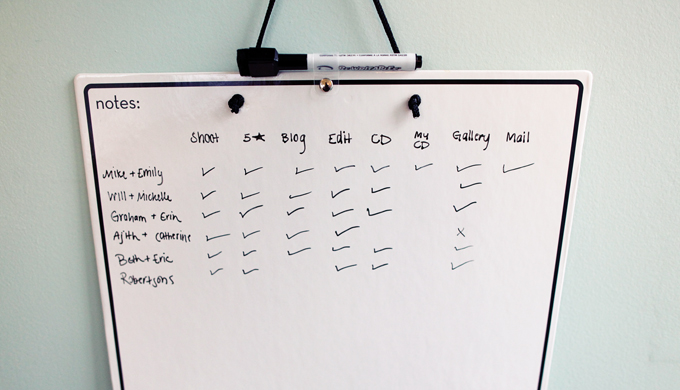 notes:
Shoot 5★ Blog Edit CD My CD Gallery Mail
Mike + Emily ✓ ✓ ✓ ✓ ✓ ✓ ✓ ✓
Will + Michelle ✓ ✓ ✓ ✓ ✓ ✓
Graham + Erin ✓ ✓ ✓ ✓ ✓ ✓
Ajith + Catherine ✓ ✓ ✓ ✓ X
Beth + Eric ✓ ✓ ✓ ✓ ✓ ✓
Robertsons ✓ ✓ ✓ ✓ ✓